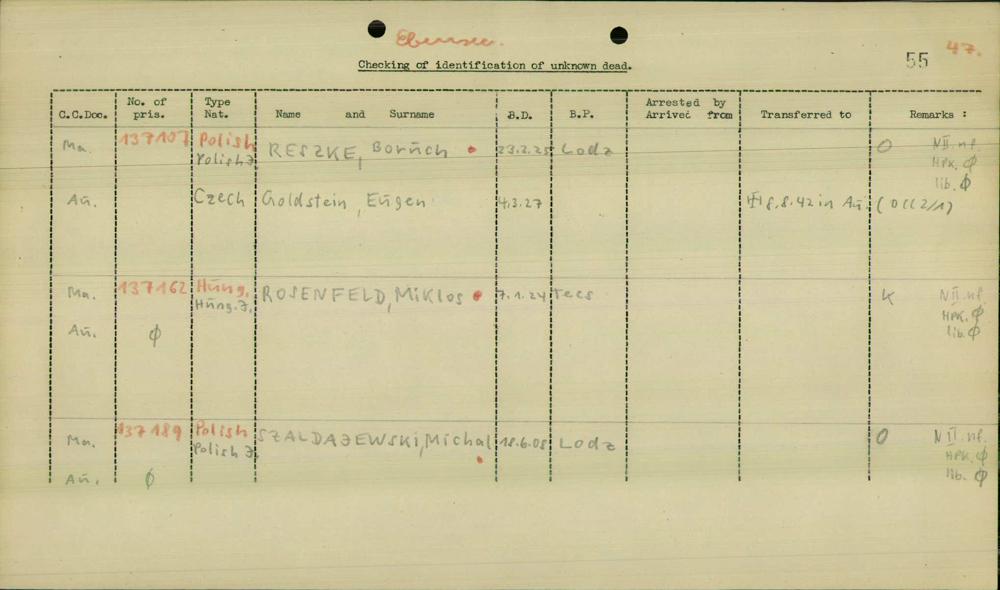 Ebensee.
47.
55
Checking of identification of unknown dead.
C.C.Doc. No. of pris. Type Nat. Name and Surname B.D. B.P. Arrested by Arrived from Transferred to Remarks :
Ma. 137107 Polish RESZKE, Borūch 23.2.25 Lodz O N II. nf.
Polish J. HPK. ϕ
lib. ϕ
Aū. Czech Goldstein, Eūgen 4.3.27 8.8.42 in Aū. (OCC 2/1)
Ma. 137162 Hūng. ROSENFELD, Miklos 7.1.24 Tecs K N II. nf.
Hūng. J. HPK. ϕ
Aū. ϕ lib. ϕ
Ma. 137189 Polish SZALDAJEWSKI, Michal 18.6.08 Lodz O N II. nf.
Polish J. HPK. ϕ
Aū. ϕ lib. ϕ